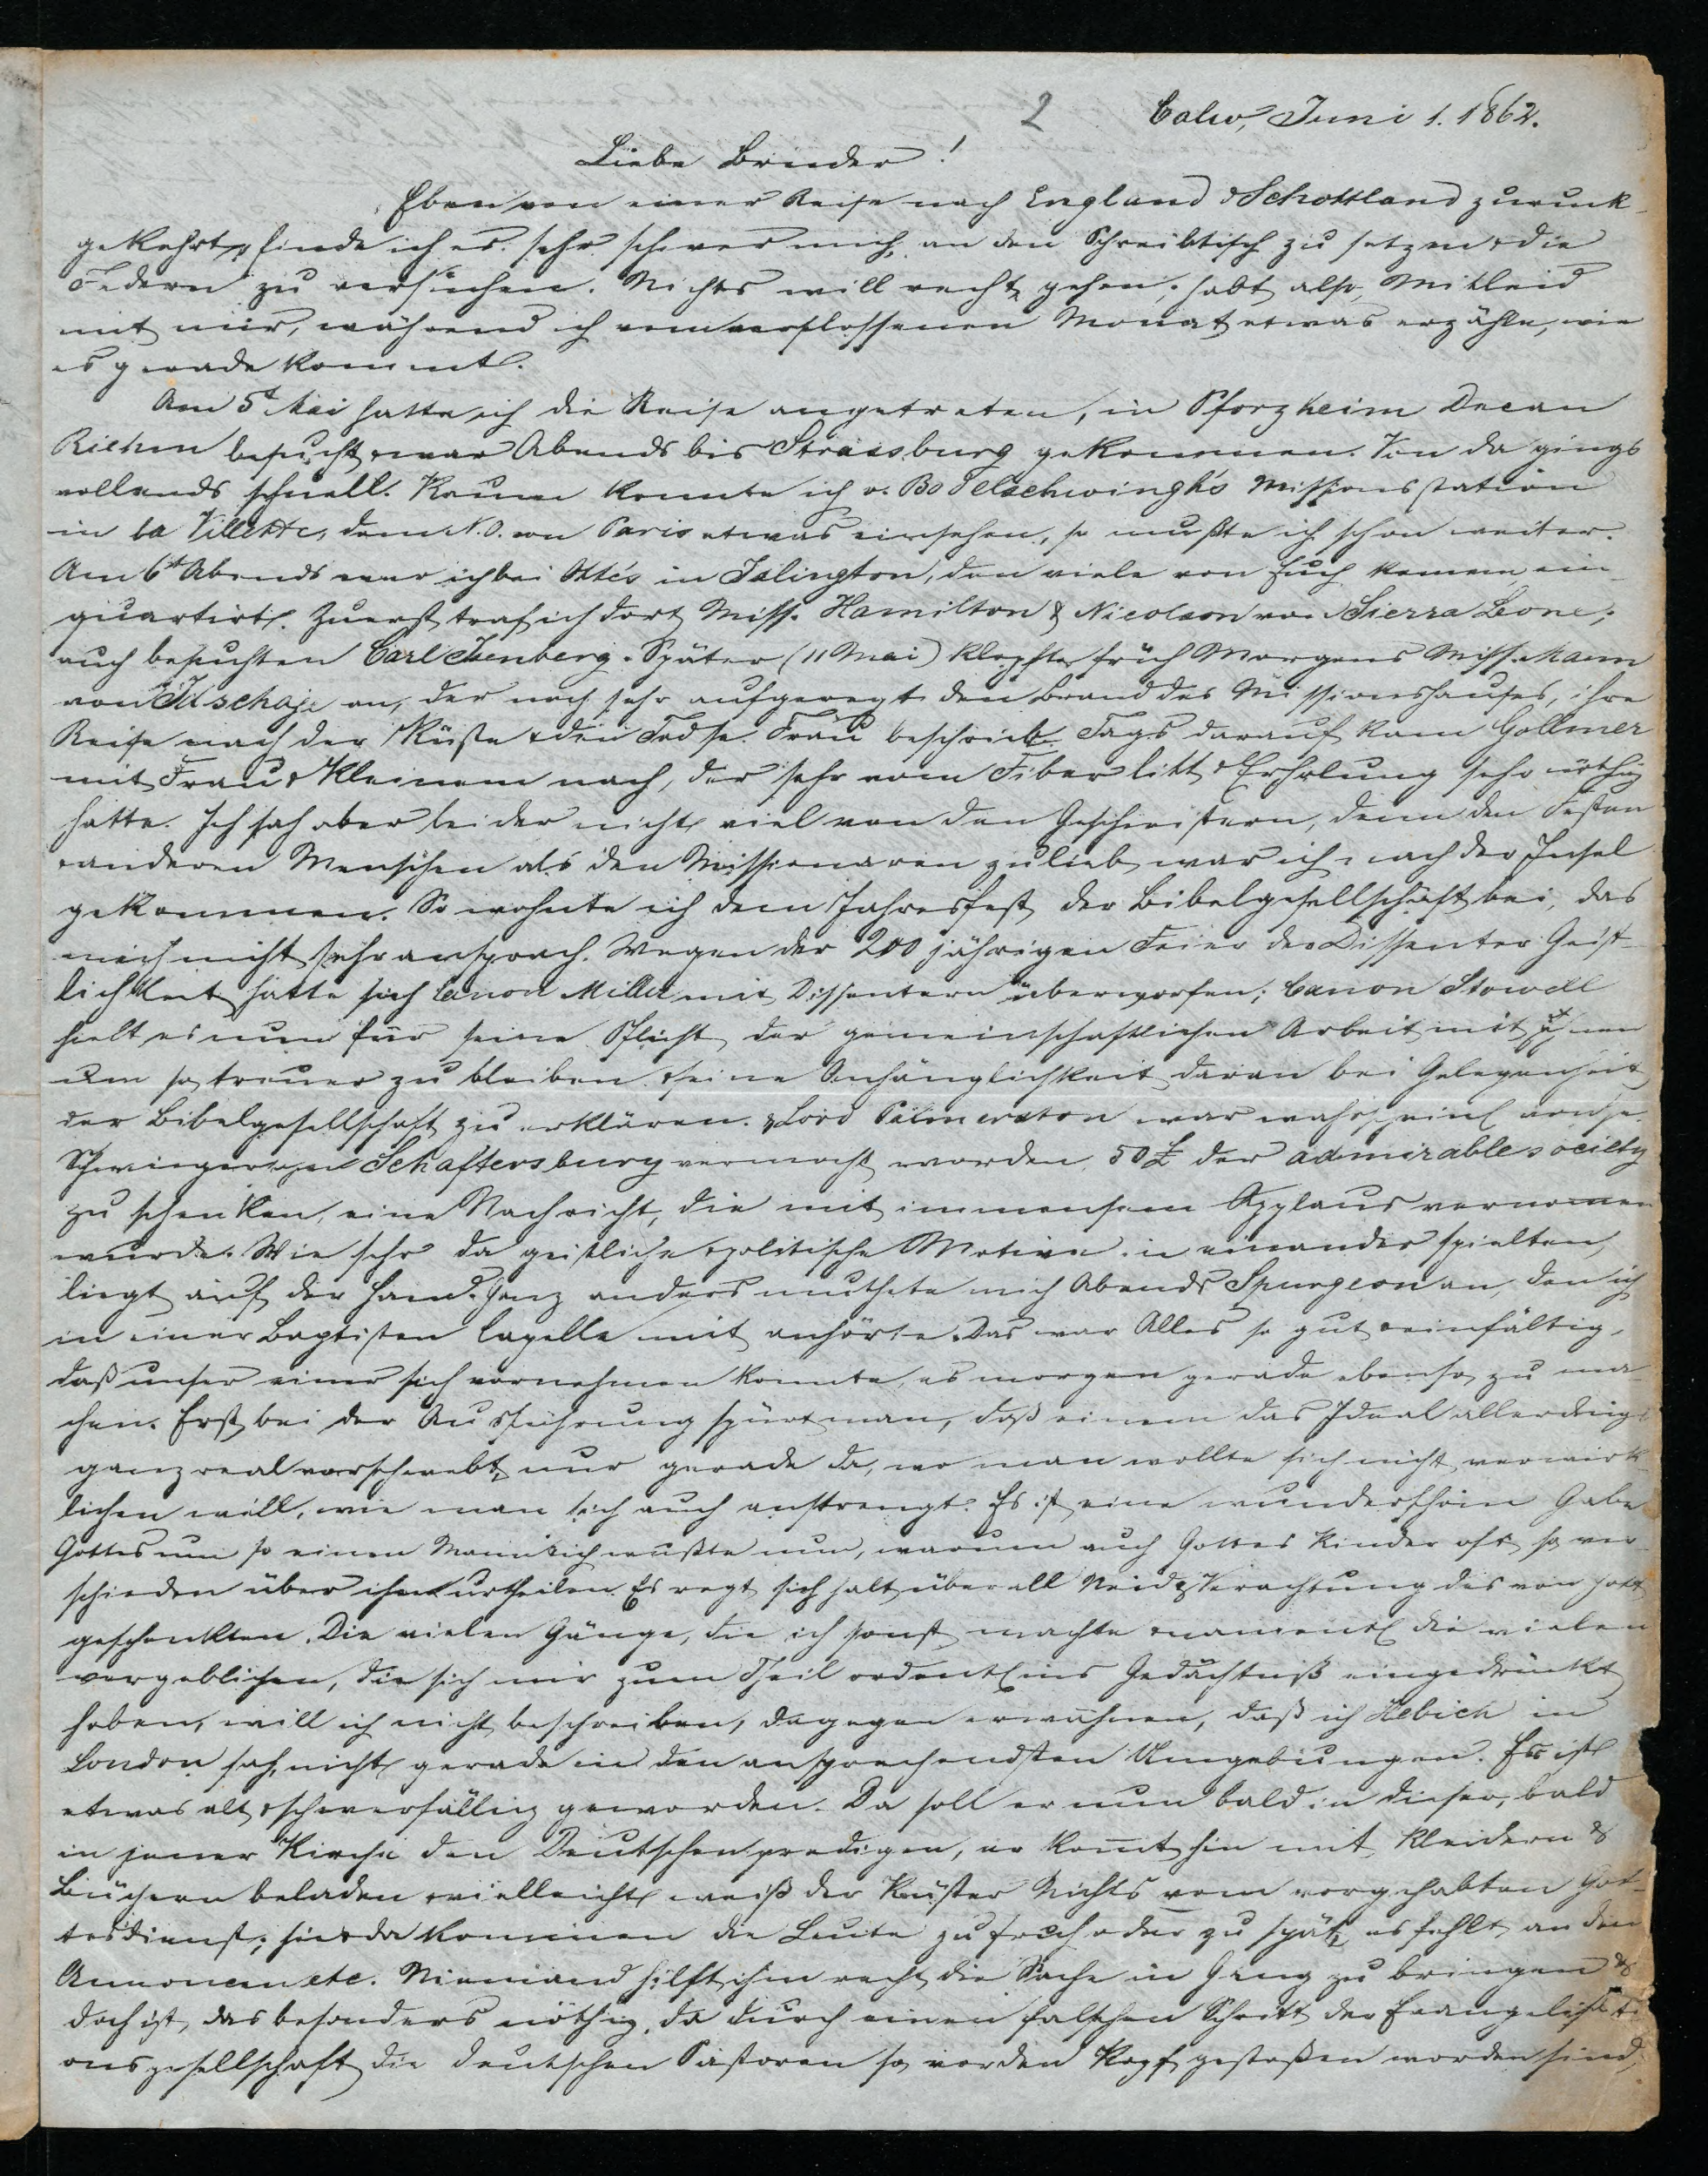 2 Calw, Juni 1. 1862.
Liebe Brüder!
Eben von einer Reise nach England & Schottland zurück-
gekehrt, finde ich es sehr schwer mich an den Schreibtisch zu setzen & die
Federn zu versuchen. Nichts will recht gehen, habt also Mitleid
mit mir, während ich vom verflossenen Monat etwas erzähle, wie
es gerade kommt.
Am 5t Mai hatte ich die Reise angetreten, in Pforzheim Decan
Riehm besucht & war Abends bis Strassburg gekommen. Von da gings
vollends schnell. Kaum konnte ich v. Bodelschwingh's Missionsstation
in la Villette, dem N.O. von Paris etwas einsehen, so mußte ich schon weiter.
Am 6t Abends war ich bei Ott's in Islington, den viele von Euch kennen, ein-
quartirt. Zuerst traf ich dort Miss. Hamilton & Nicolson von Sierra Leone;
auch besuchten Carl Isenberg. Später (11 Mai) klopfte früh Morgens Miss. Mann
von Ischaje an, der noch sehr aufgeregt den Brand des Missionshauses, ihre
Reise nach der Küste & den Tod sr. Frau beschrieb. Tags darauf kam Gollmer
mit Frau & Kleinem nach, der sehr vom Fiber litt & Erholung sehr nöthig
hatte. Ich sah aber leider nicht viel von den Geschwistern, denn den Festen
& anderen Menschen als den Missionaren zulieb war ich nach der Insel
gekommen. So wohnte ich dem Jahresfest der Bibelgesellschaft bei, das
mich nicht sehr ansprach. Wegen der 200 jährigen Feier der Dissenter Geist-
lichkeit hatte sich Canon Miller mit Dissentern überworfen; Canon Stowell
hielt es nun für seine Pflicht der gemeinschaftlichen Arbeit mit ihnen
um so treuer zu bleiben & seine Anhänglichkeit daran bei Gelegenheit
der Bibelgesellschaft zu erklären. & Lord Palmerston war wahrscheinl von se.
Schwiegersohn Schaftersbury vermocht worden 50 £ der admirable society
zu schenken, eine Nachricht, die mit immensem Applaus vernomen
wurde. Wie sehr da geistliche & politische Motive in einander spielten,
liegt auf der Hand. Ganz anders muthete mich Abends Spurgeon an, den ich
in einer Baptisten Capelle mit anhörte. Das war Alles so gut & einfältig,
daß unser einer sich vornehmen konnte, es morgen gerade ebenso zu ma-
chen. Erst bei der Ausführung spürt man, daß einem das Ideal allerdings
ganz real vorschwebt, nur gerade da, wo man wollte sich nicht verwirk-
lichen will, wie man sich auch anstrengt. Es ist eine wunderschöne Gabe
Gottes um so einen Mann & ich wußte nun, warum auch Gottes Kinder oft so ver-
schieden über ihn urtheilen. Es regt sich halt überall Neid & Verachtung des von Gott
geschenkten. Die vielen Gänge, die ich sonst machte & namentl die vielen
vergeblichen, die sich mir zum Theil ordentl ins Gedächtniß eingedrückt
haben, will ich nicht beschreiben, dagegen erwähnen, daß ich Hebich in
London sah, nicht gerade in den ansprechendsten Umgebungen. Er ist
etwas alt & schwerfällig geworden. Da soll er nun bald in dieser, bald
in jener Kirche den Deutschen predigen, er komt hin mit Kleidern &
Büchern beladen & vielleicht weiß der Küster Nichts vom vorgehabten Got-
tesdienst; hie & da kommen die Leute zu früh oder zu spät, es fehlt an den
Annoncen etc. Niemand hilft ihm recht die Sache in Gang zu bringen &
doch ist das besonders nöthig, da durch einen falschen Schritt der Evangelisati-
onsgesellschaft die deutschen Pastoren so vorden Kopf gestoßen worden sind,